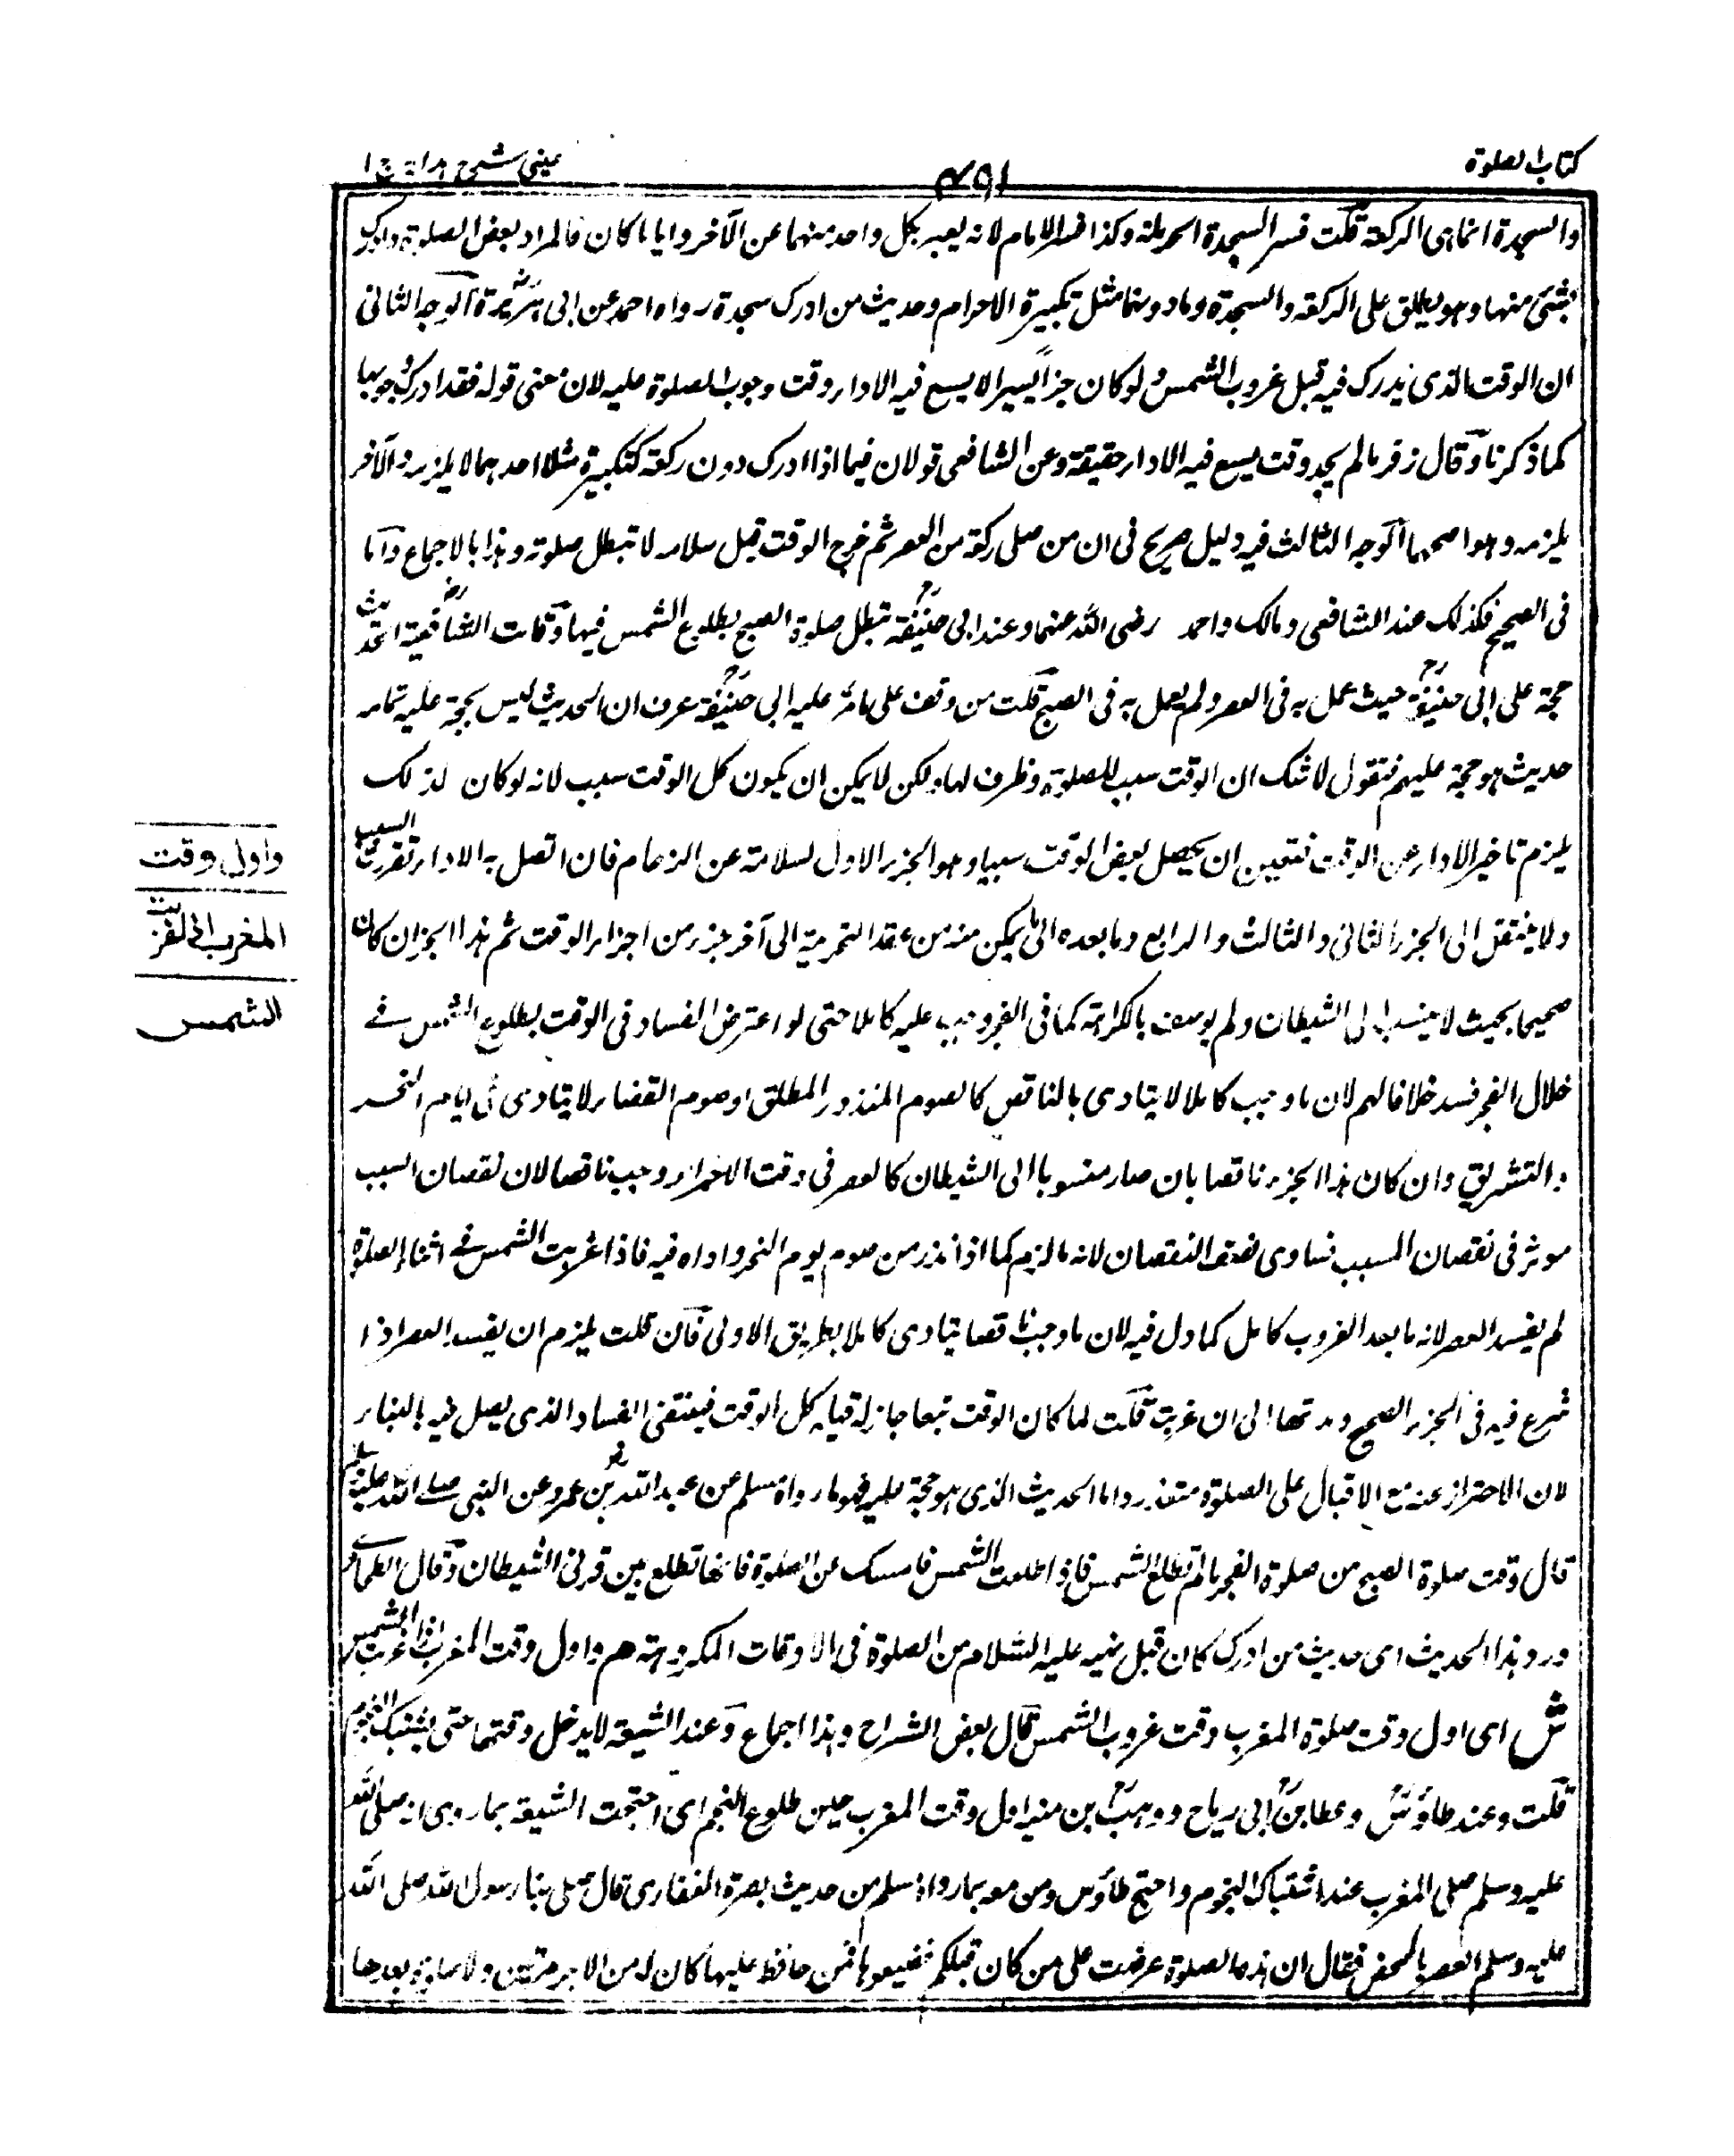 كتاب الصلوة
٤٩١
عينى شرح هداية ج ١
والسجدة انما هى الركعة قلت فسر السجدة حرملة وكذا فسر الامام لانه يعبر بكل واحد منهما عن الآخر وايا ما كان فالمراد بعض الصلوة وادراك
بشئ منها وهو يطلق على الركعة والسجدة وما دونها مثل تكبيرة الاحرام وحديث من ادرك سجدة رواه احمد عن ابى هريرة الوجه الثانى
ان الوقت الذى يدرك فيه قبل غروب الشمس ولو كان جزأ يسيرا لا يسع فيه الاداء وقت وجوب الصلوة عليه لان معنى قوله فقد ادرك وجوبها
كما ذكرنا وقال زفر ما لم يجد وقت يسع فيه الاداء حقيقة وعن الشافعى قولان فيما اذا ادرك دون ركعة كتكبيرة مثلا احدهما لا يلزمه والآخر
يلزمه وهو اصحهما الوجه الثالث فيه دليل صريح فى ان من صلى ركعة من العصر ثم خرج الوقت قبل سلامه لا تبطل صلوته وهذا بالاجماع واما
فى الصبح فكذلك عند الشافعى ومالك واحمد رضى الله عنهما وعند ابى حنيفة تبطل صلوة الصبح بطلوع الشمس فيها وقالت الشافعية الحديث
حجة على ابى حنيفة حيث عمل به فى العصر ولم يعمل به فى الصبح قلت من وقف على ما مر عليه ابى حنيفة عرف ان الحديث ليس بحجة عليه تمامه
حديث هو حجة عليهم فنقول لا شك ان الوقت سبب للصلوة وظرف لها ولكن لا يمكن ان يكون كل الوقت سبب لانه لو كان لذلك
يلزم تاخير الاداء عن الوقت فتعين ان يحصل بعض الوقت سببا وهو الجزء الاول لسلامته عن الزحام فان اتصل به الاداء تقررت السبب
ولا ينتقل الى الجزء الثانى والثالث والرابع وما بعده الى ما يمكن منه من عقد التحريمة الى آخر جزء من اجزاء الوقت ثم هذا الجزء ان كان
صحيحا بحيث لا ينسب الى الشيطان ولم يوصف بالكراهة كما فى الفجر وجب عليه كاملا حتى لو اعترض الفساد فى الوقت بطلوع الشمس فى
خلال الفجر فسد خلافا لهم لان ما وجب كاملا لا يتادى بالناقص كالصوم المنذور المطلق او صوم القضاء لا يتادى فى ايام النحر
والتشريق وان كان هذا الجزء ناقصا بان صار منسوبا الى الشيطان كالعصر فى وقت الاحمرار وجب ناقصا لان نقصان السبب
موثر فى نقصان المسبب فساوى بصفة النقصان لانه ما لزم كما اذا نذر من صوم يوم النحر واداه فيه فاذا غربت الشمس فى اثناء الصلوة
لم يفسد العصر لانه ما بعد الغروب كامل كما دل فيه لان ما وجب ناقصا يتادى كاملا بطريق الاولى فان قلت يلزم ان يفسد العصر اذا
شرع فيه فى الجزء الصحيح ومدتها الى ان غربت قلت لما كان الوقت تبعا جاز له قبله كل الوقت فينتفى الفساد الذى يصل فيه بالبناء
لان الاحتراز عنه مع الاقبال على الصلوة متعذر واما الحديث الذى هو حجة عليه فهو ما رواه مسلم عن عبد الله بن عمرو عن النبى صلى الله عليه وسلم
قال وقت صلوة الصبح من صلوة الفجر ما لم تطلع الشمس فاذا طلعت الشمس فامسك عن الصلوة فانها تطلع بين قرنى الشيطان وقال الطحاوى
ورود هذا الحديث اى حديث من ادرك كان قبل نهيه عليه السلام من الصلوة فى الاوقات المكروهة هم واول وقت المغرب اذا غربت الشمس
ش اى اول وقت صلوة المغرب وقت غروب الشمس قال بعض الشراح وهذا اجماع وعند الشيعة لا يدخل وقتها حتى يشتبك النجوم
قلت وعند طاؤس وعطا بن ابى رباح ووهب بن منبه اول وقت المغرب حين طلوع النجم اى احتجت الشيعة بما روى انه صلى الله
عليه وسلم صلى المغرب عند اشتباك النجوم واحتج طاؤس ومن معه بما رواه مسلم من حديث بصرة الغفارى قال صلى بنا رسول الله صلى الله
عليه وسلم العصر بالمحمض فقال ان هذه الصلوة عرضت على من كان قبلكم فضيعوها فمن حافظ عليها كان له من الاجر مرتين ولا صلوة بعدها
واول وقت
المغرب اذا غربت
الشمس